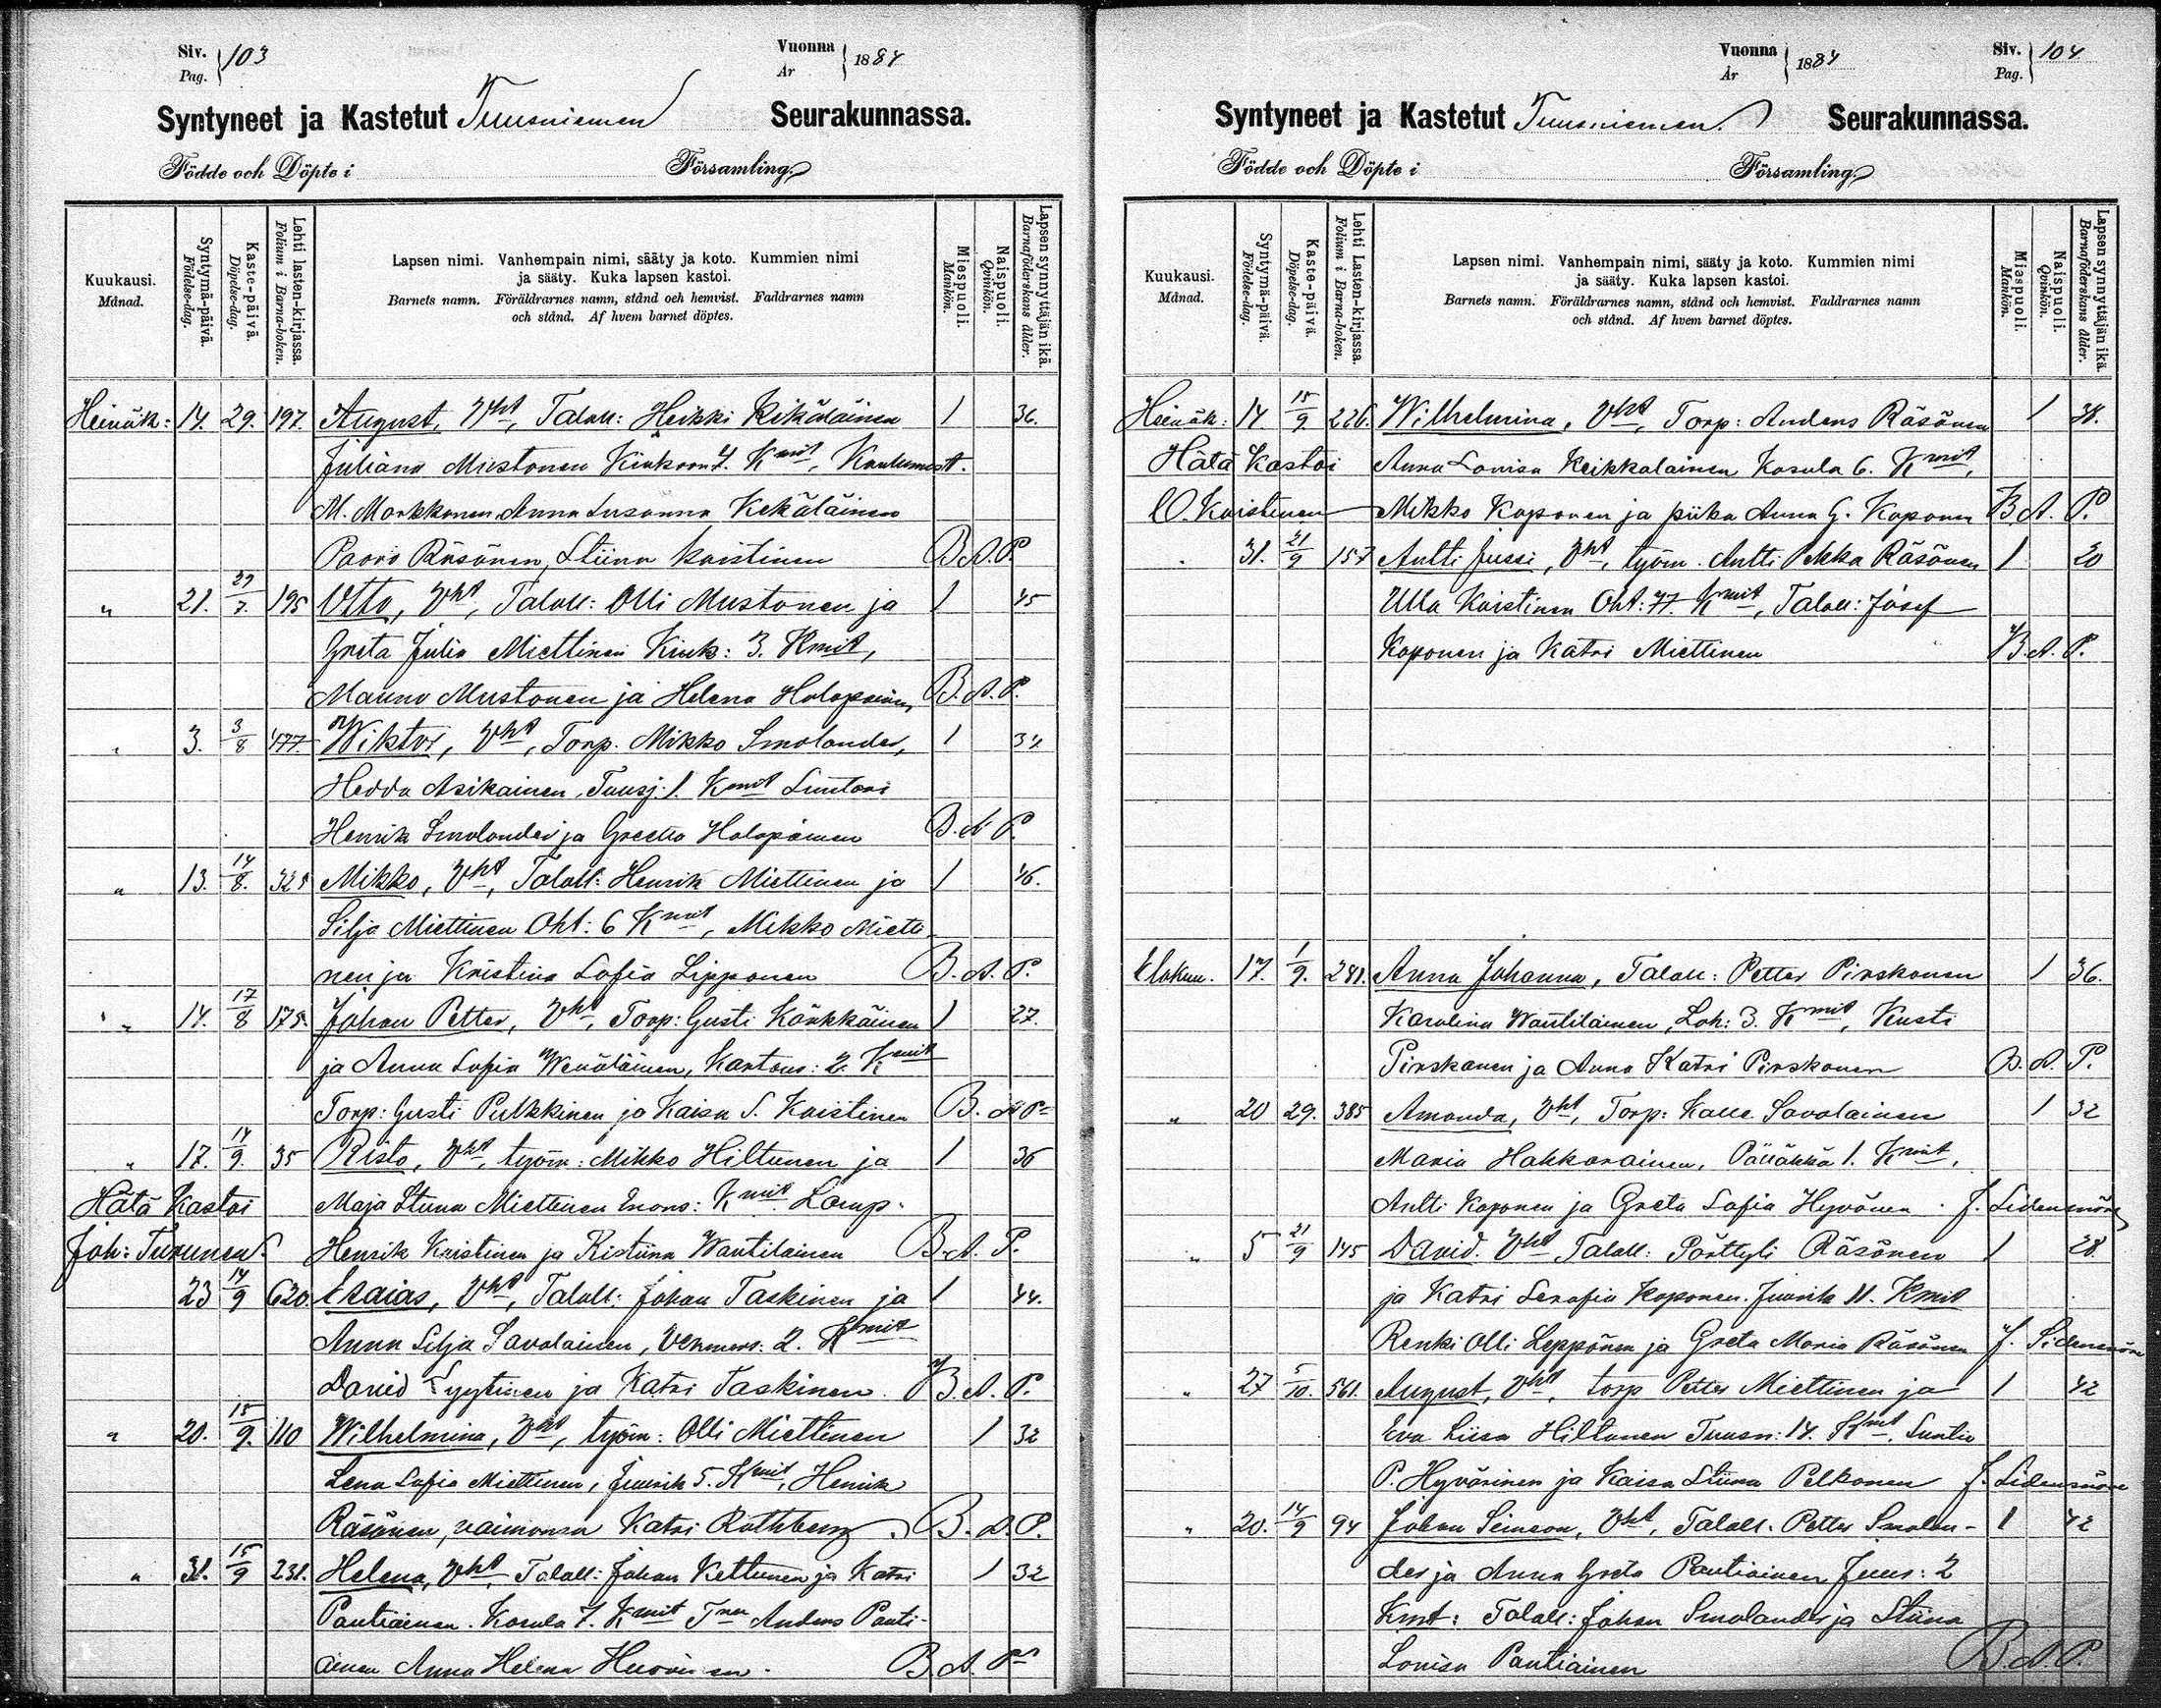 Siv.
Pag. 103
Vuonna
År 1884
Syntyneet ja Kastetut Tuusniemen Seurakunnassa.
Födde och Döpte i Församling.
Kuukausi.
Månad.
Syntymä-päivä.
Födelse-dag.
Kaste-päivä.
Döpelse-dag.
Lehti lasten-kirjassa.
Folium i Barna-boken.
Lapsen nimi. Vanhempain nimi, sääty ja koto. Kummien nimi
ja sääty. Kuka lapsen kastoi.
Barnets namn. Föräldrarnes namn, stånd och hemvist. Faddrarnes namn
och stånd. Af hvem barnet döptes.
Miespuoli.
Mankön.
Naispuoli.
Qvinkön.
Lapsen synnyttäjän ikä.
Barnaföderskans ålder.
Heinäk: 14. 29. 197. August, Vht, Talall: Heikki Kekäläinen 1 36.
Juliana Mustonen 4. Kmit,
M. Markkonen Anna Susanna Kekäläinen
Paavo Räsänen, Stiina Kaistinen B.A.P.
" 21. 29/7. 195 Otto, Vht, Talall: Olli Mustonen ja 1 45
Greta Julia Miettinen Kiuk: 3. Kmit,
Mauno Mustonen ja Helena Holopainen B.A.P.
" 3. 3/8 477. Wiktor, Vht, Torp. Mikko Smolander, 1 34
Hedda Asikainen, Tuusj. 1. Kmit Suntari
Henrik Smolander ja Greetta Holopainen B.A.P.
" 13. 14/8. 325 Mikko, Vht, Talall: Henrik Miettinen ja 1 46.
Silja Miettinen Oht: 6 Kmit, Mikko Mietti
nen ja Kristina Sofia Lipponen B.A.P.
" 14. 17/8 175. Johan Petter, Vht, Torp: Gusti Kärkkäinen 1 27.
ja Anna Sofia Wenäläinen, Kartans: 2. Kmit
Torp: Gusti Pulkkinen ja Kaisa S. Kaistinen B.A.P.
" 17. 14/9. 35 Risto, Vht, työm: Mikko Hiltunen ja 1 36
Hätä Kastoi Maja Stina Miettinen Enons: Kmit. Lamp.
Joh: Turunen Henrik Kaistinen ja Ristiina Wantilainen B.A.P.
23 14/9 620. Esaias, Vht, Talall: Johan Taskinen ja 1 44.
Anna Silja Savolainen, Vehmers: 2. Kmit
David Lyytinen ja Katri Taskinen. B.A.P.
" 20. 15/9. 110 Wilhelmina, Vht, työm: Olli Miettinen 1 32
Lena Sofia Miettinen, Juurik 5. Kmit, Henrik
Räsänen, vaimonsa Katri Rothberg B.A.P.
" 31. 15/9 231. Helena, Vht, Talall: Johan Kettunen ja Katri 1 32
Pantiainen. Kosula 7. Kmit Anders Panti-
ainen Anna Helena Huovinen. B.A.P.
Vuonna
År 1884
Siv.
Pag. 104
Syntyneet ja Kastetut Tuusniemen. Seurakunnassa.
Födde och Döpte i Församling.
Kuukausi.
Månad.
Syntymä-päivä.
Födelse-dag.
Kaste-päivä.
Döpelse-dag.
Lehti Lasten-kirjassa.
Folium i Barna-boken.
Lapsen nimi. Vanhempain nimi, sääty ja koto. Kummien nimi
ja sääty. Kuka lapsen kastoi.
Barnets namn. Föräldrarnes namn, stånd och hemvist. Faddrarnes namn
och stånd. Af hvem barnet döptes.
Miespuoli.
Mankön.
Naispuoli.
Qvinkön.
Lapsen synnyttäjän ikä.
Barnaföderskans ålder.
Heinäk: 14. 15/9 226. Wilhelmina, Vht, Torp: Anders Räsänen 1 38.
Hätä Kastoi Anna Lovisa Keikkalainen Kosula 6. Kmit,
O. Kaistinen Mikko Koponen ja piika Anna G. Koponen B.A.P.
" 31. 21/9 157 Antti Jussi, Vht, työm. Antti Pekka Räsänen 1 20
Ulla Kaistinen Oht: 77. Kmit, Talall: Josef
Koponen ja Katri Miettinen B.A.P.
Elokuu. 17. 1/9. 281. Anna Johanna, Talall: Petter Pirskanen 1 36.
Karolina Wantilainen, Loh: 3. Kmit, Kusti
Pirskanen ja Anna Katri Pirskanen B.A.P.
" 20 29. 385 Amanda, Vht, Torp: Kalle Savolainen 1 32
Maria Hakkarainen, 1. Kmit,
Antti Koponen ja Greta Sofia Hyvönen. J. Sidensnöre
" 5 21/9 145 David. Vht Talall: Pärttyli Räsänen 1 28.
ja Katri Serafia Koponen. Juurik 11. Kmit
Renki Olli Leppänen ja Greta Maria Räsänen J. Sidensnöre
" 27 5/10. 561. August, Vht, torp Petter Miettinen ja 1 42
Eva Liisa Hiltunen Tuusn: 14. Kmt. Suntio
P. Hyvärinen ja Kaisa Stiina Pelkonen J. Sidensnöre
" 20. 14/9 94 Johan Simeon, Vht, Talall. Petter Smolan- 1 42
der ja Anna Greta Pantiainen Juur: 2
Kmt: Talall: Johan Smolander ja Stiina
Lovisa Pantiainen B.A.P.